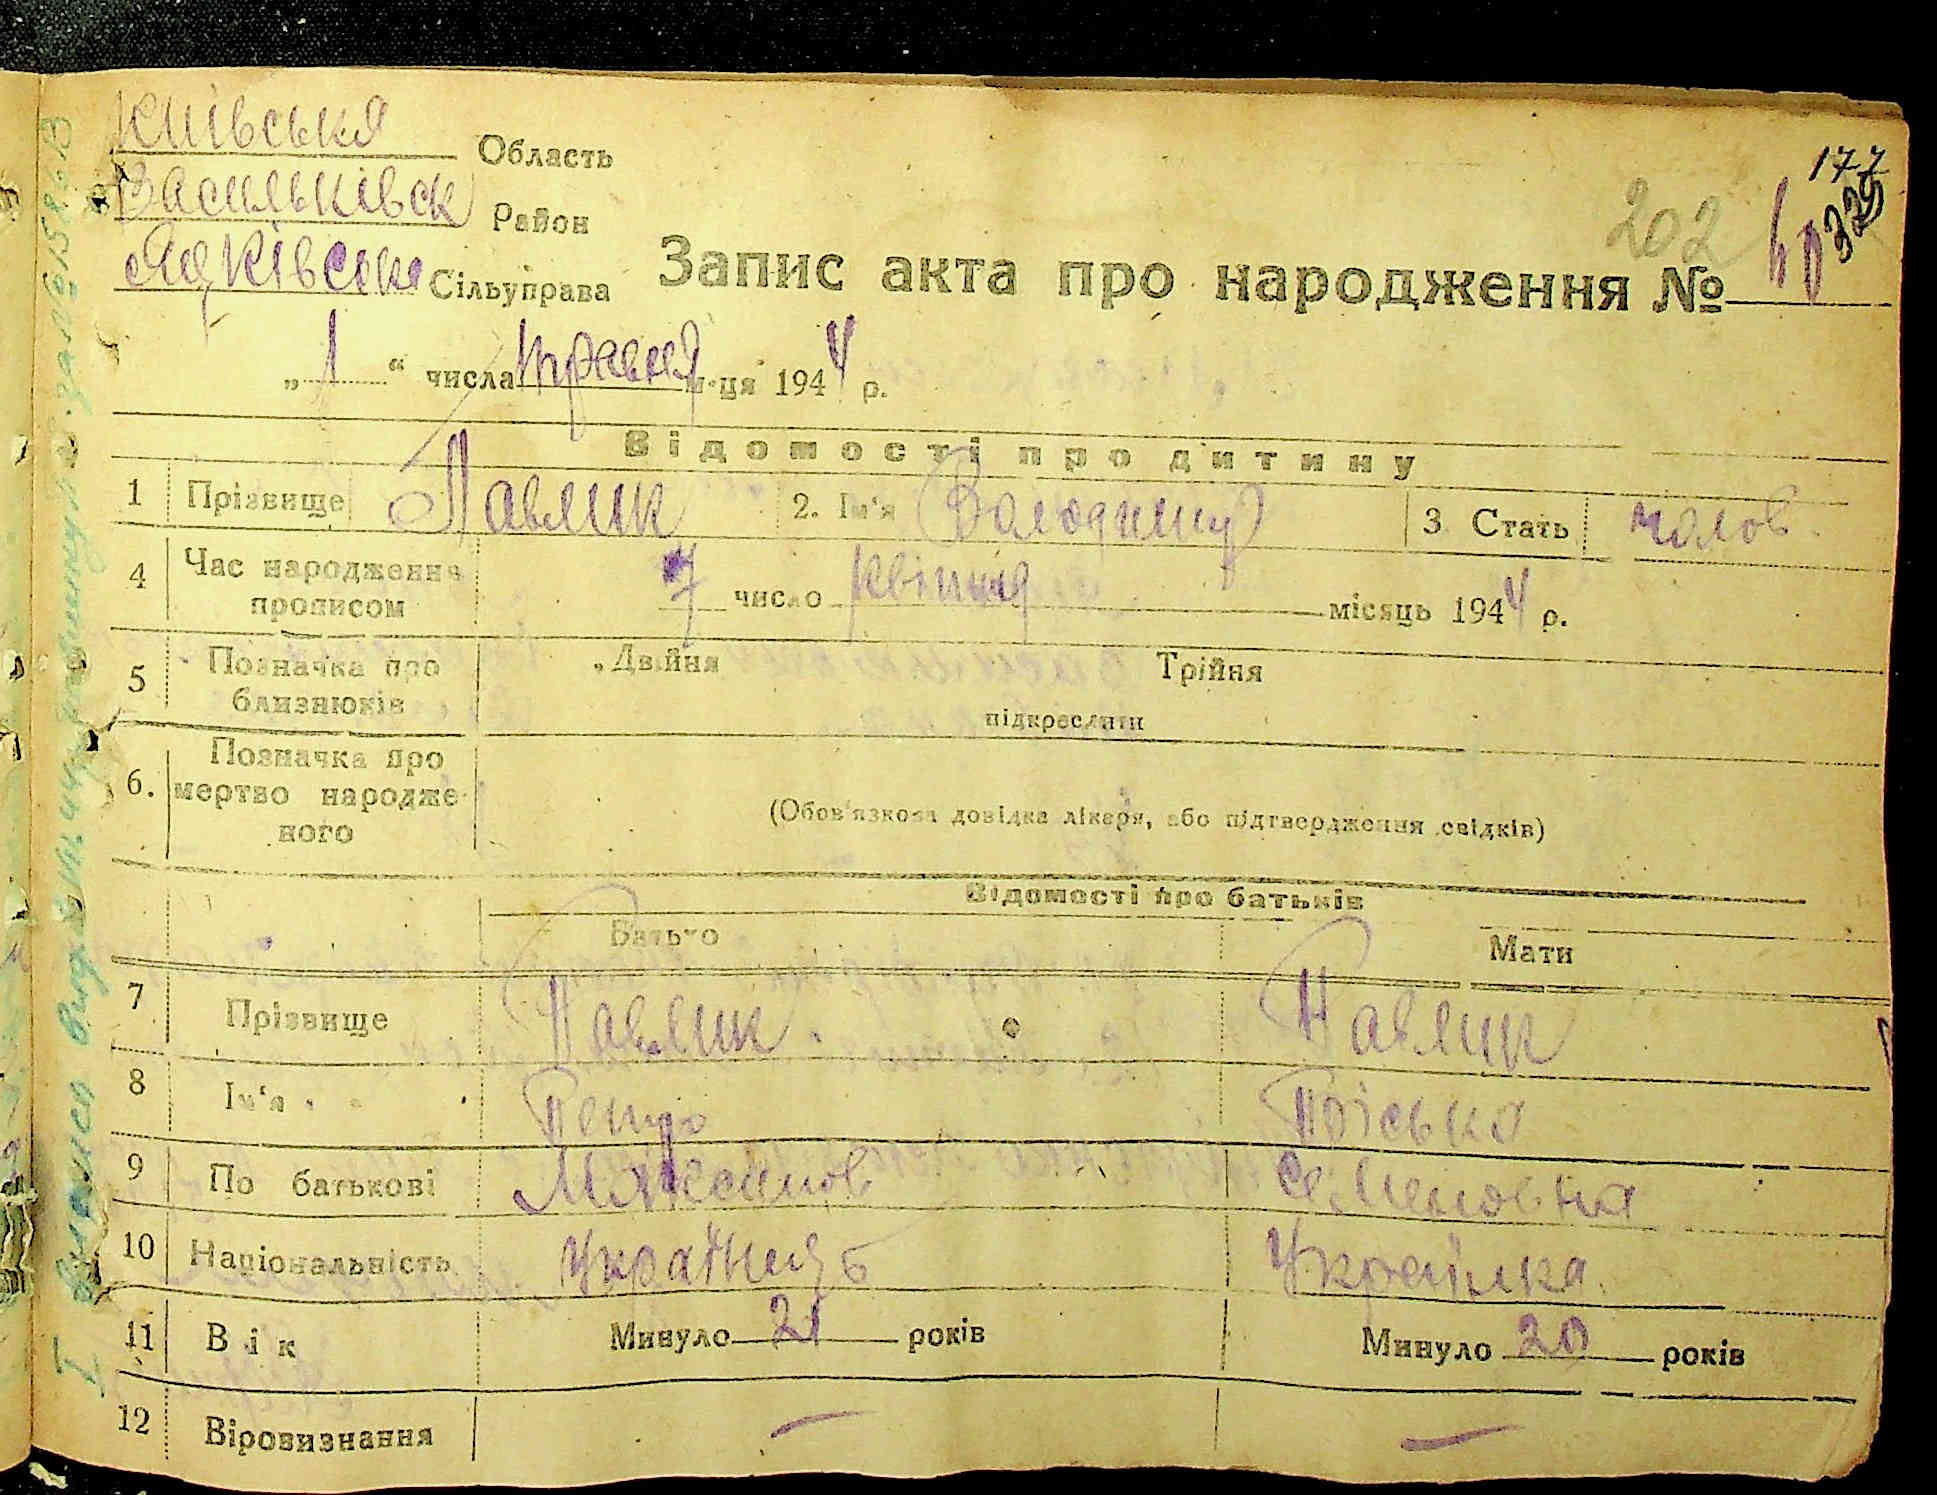 Київська Область
Васильківськ Район
Сільуправа
Запис акта про народження №
177
202
329
„ 1 “ числа травня м-ця 1944 р.
Відомості про дитину
1 Прізвище Павлик 2. Ім'я Володимир 3 Стать чолов.
4 Час народження прописом 7 число квітня місяць 1944 р.
5 Позначка про близнюків Двійня Трійня
підкреслити
6. Позначка про мертво народженого
(Обов'язкова довідка лікаря, або підтвердження свідків)
Відомості про батьків
Батько Мати
7 Прізвище Павлик Павлик
8 Ім'я Петро
9 По батькові Максимов Семеновна
10 Національність Українець Українка
11 Вік Минуло 21 років Минуло 20 років
12 Віровизнання — —